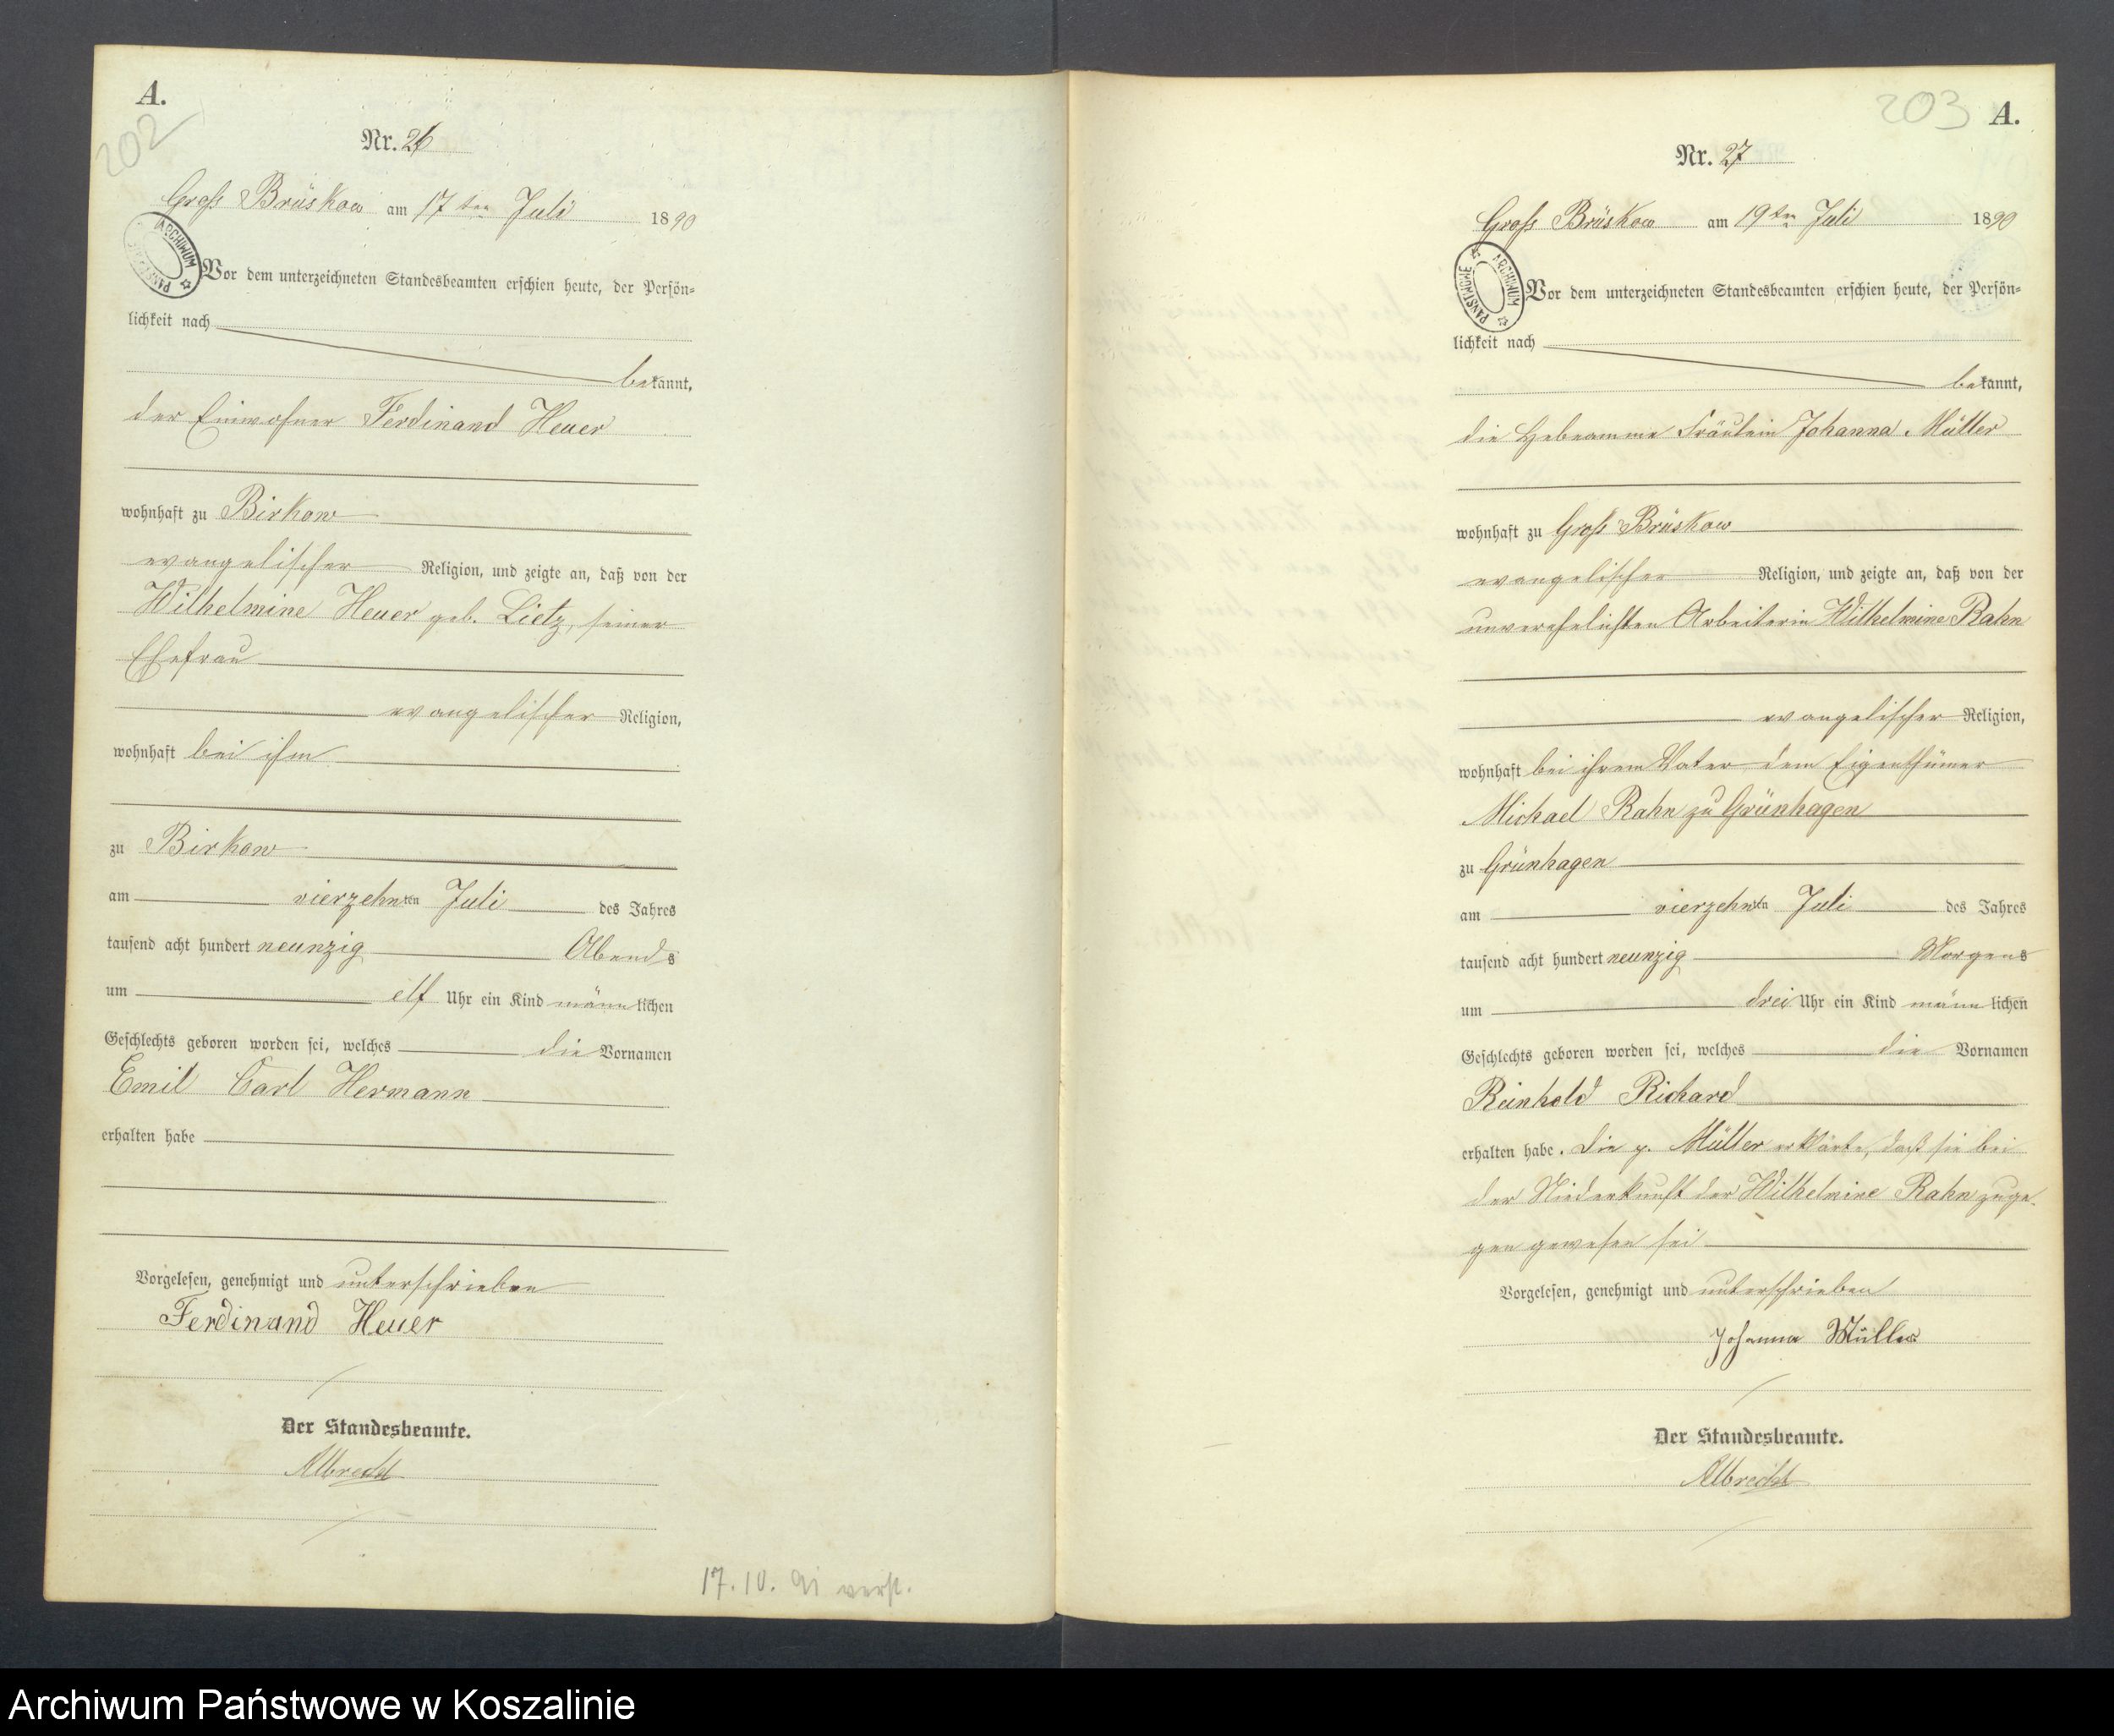 A.
202
Nr. 26
Groß Brüskow am 17ten Juli 1890
ARCHIWUM PAŃSTWOWE
Vor dem unterzeichneten Standesbeamten erschien heute, der Persön-
lichkeit nach
bekannt,
der Einwohner Ferdinand Heuer
wohnhaft zu Birkow
evangelischer Religion, und zeigte an, daß von der
Wilhelmine Heuer geb. Lietz, seiner
Ehefrau
evangelischer Religion,
wohnhaft bei ihm
zu Birkow
am vierzehnten Juli des Jahres
tausend acht hundert neunzig Abends
um elf Uhr ein Kind männlichen
Geschlechts geboren worden sei, welches die Vornamen
Emil Carl Hermann
erhalten habe
Vorgelesen, genehmigt und unterschrieben
Ferdinand Heuer
Der Standesbeamte.
Albrecht
17.10. 91 verst.
203 A.
Nr. 27
Groß Brüskow am 19ten Juli 1890
ARCHIWUM PAŃSTWOWE
Vor dem unterzeichneten Standesbeamten erschien heute, der Persön-
lichkeit nach
bekannt,
die Hebeamme Fräulein Johanna Müller
wohnhaft zu Groß Brüskow
evangelischer Religion, und zeigte an, daß von der
unverehelichten Arbeiterin Wilhelmine Rahn
evangelischer Religion,
wohnhaft bei ihrem Vater dem Eigenthümer
Michael Rahn zu Grünhagen
zu Grünhagen
am vierzehnten Juli des Jahres
tausend acht hundert neunzig Morgens
um drei Uhr ein Kind männlichen
Geschlechts geboren worden sei, welches die Vornamen
Reinhold Richard
erhalten habe. Die p. Müller erklärte, daß sie bei
der Niederkunft der Wilhelmine Rahn zuge-
gen gewesen sei
Vorgelesen, genehmigt und unterschrieben
Johanna Müller
Der Standesbeamte.
Albrecht
Archiwum Państwowe w Koszalinie